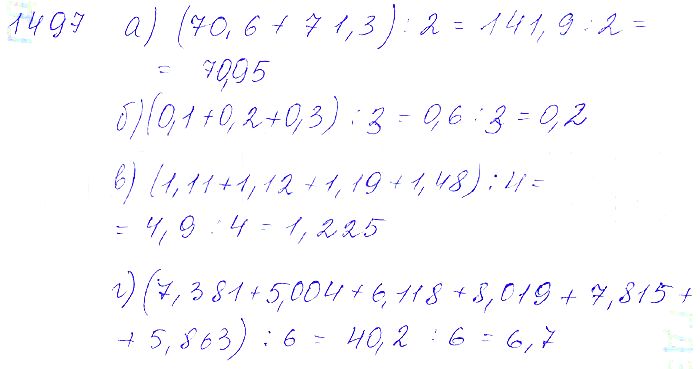 1497 а) (70,6 + 71,3) : 2 = 141,9 : 2 =
= 70,95
б) (0,1+0,2+0,3) : 3 = 0,6 : 3 = 0,2
в) (1,11+1,12+1,19+1,48) : 4 =
= 4,9 : 4 = 1,225
г) (7,381+5,004+6,118+8,019+7,815+
+ 5,863) : 6 = 40,2 : 6 = 6,7